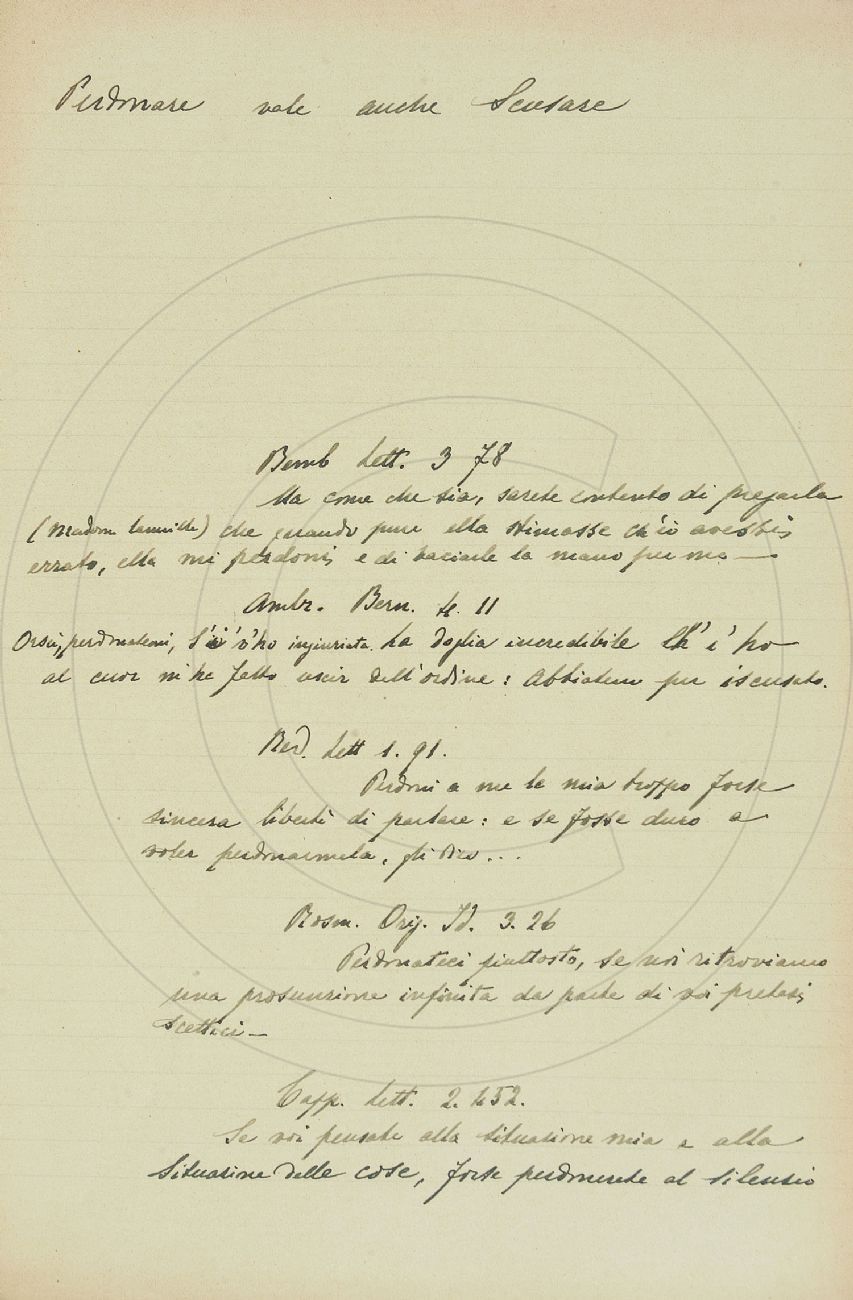 Perdonare vale anche Scusare
Bemb Lett. 3 78
Ma come che sia, sarete contento di pregarla
(Madonna Camilla) che quando pur ella stimasse ch'io avessi
errato, ella mi perdoni, e di baciarle la mano per me —
Ambr. Bern. 4. 11
Orsù, perdonatemi, s'i' v'ho ingiuriata. La doglia incredibile ch' i' ho
al cuor m'ha fatto uscir dell'ordine: Abbiatem per iscusato.
Red. Lett 1. 91.
Perdoni a me la mia troppo forse
sincera libertà di parlare: e se fosse duro a
voler perdonarmela, gli dico...
Rosm. Orig. Id. 3. 26
Perdonateci piuttosto, se noi ritroviamo
una prosunzione infinita da parte di voi pretesi
Scettici —
Capp. Lett. 2. 452.
Se voi pensate alla situazione mia e alla
situazione delle cose, forse perdonerete al silenzio